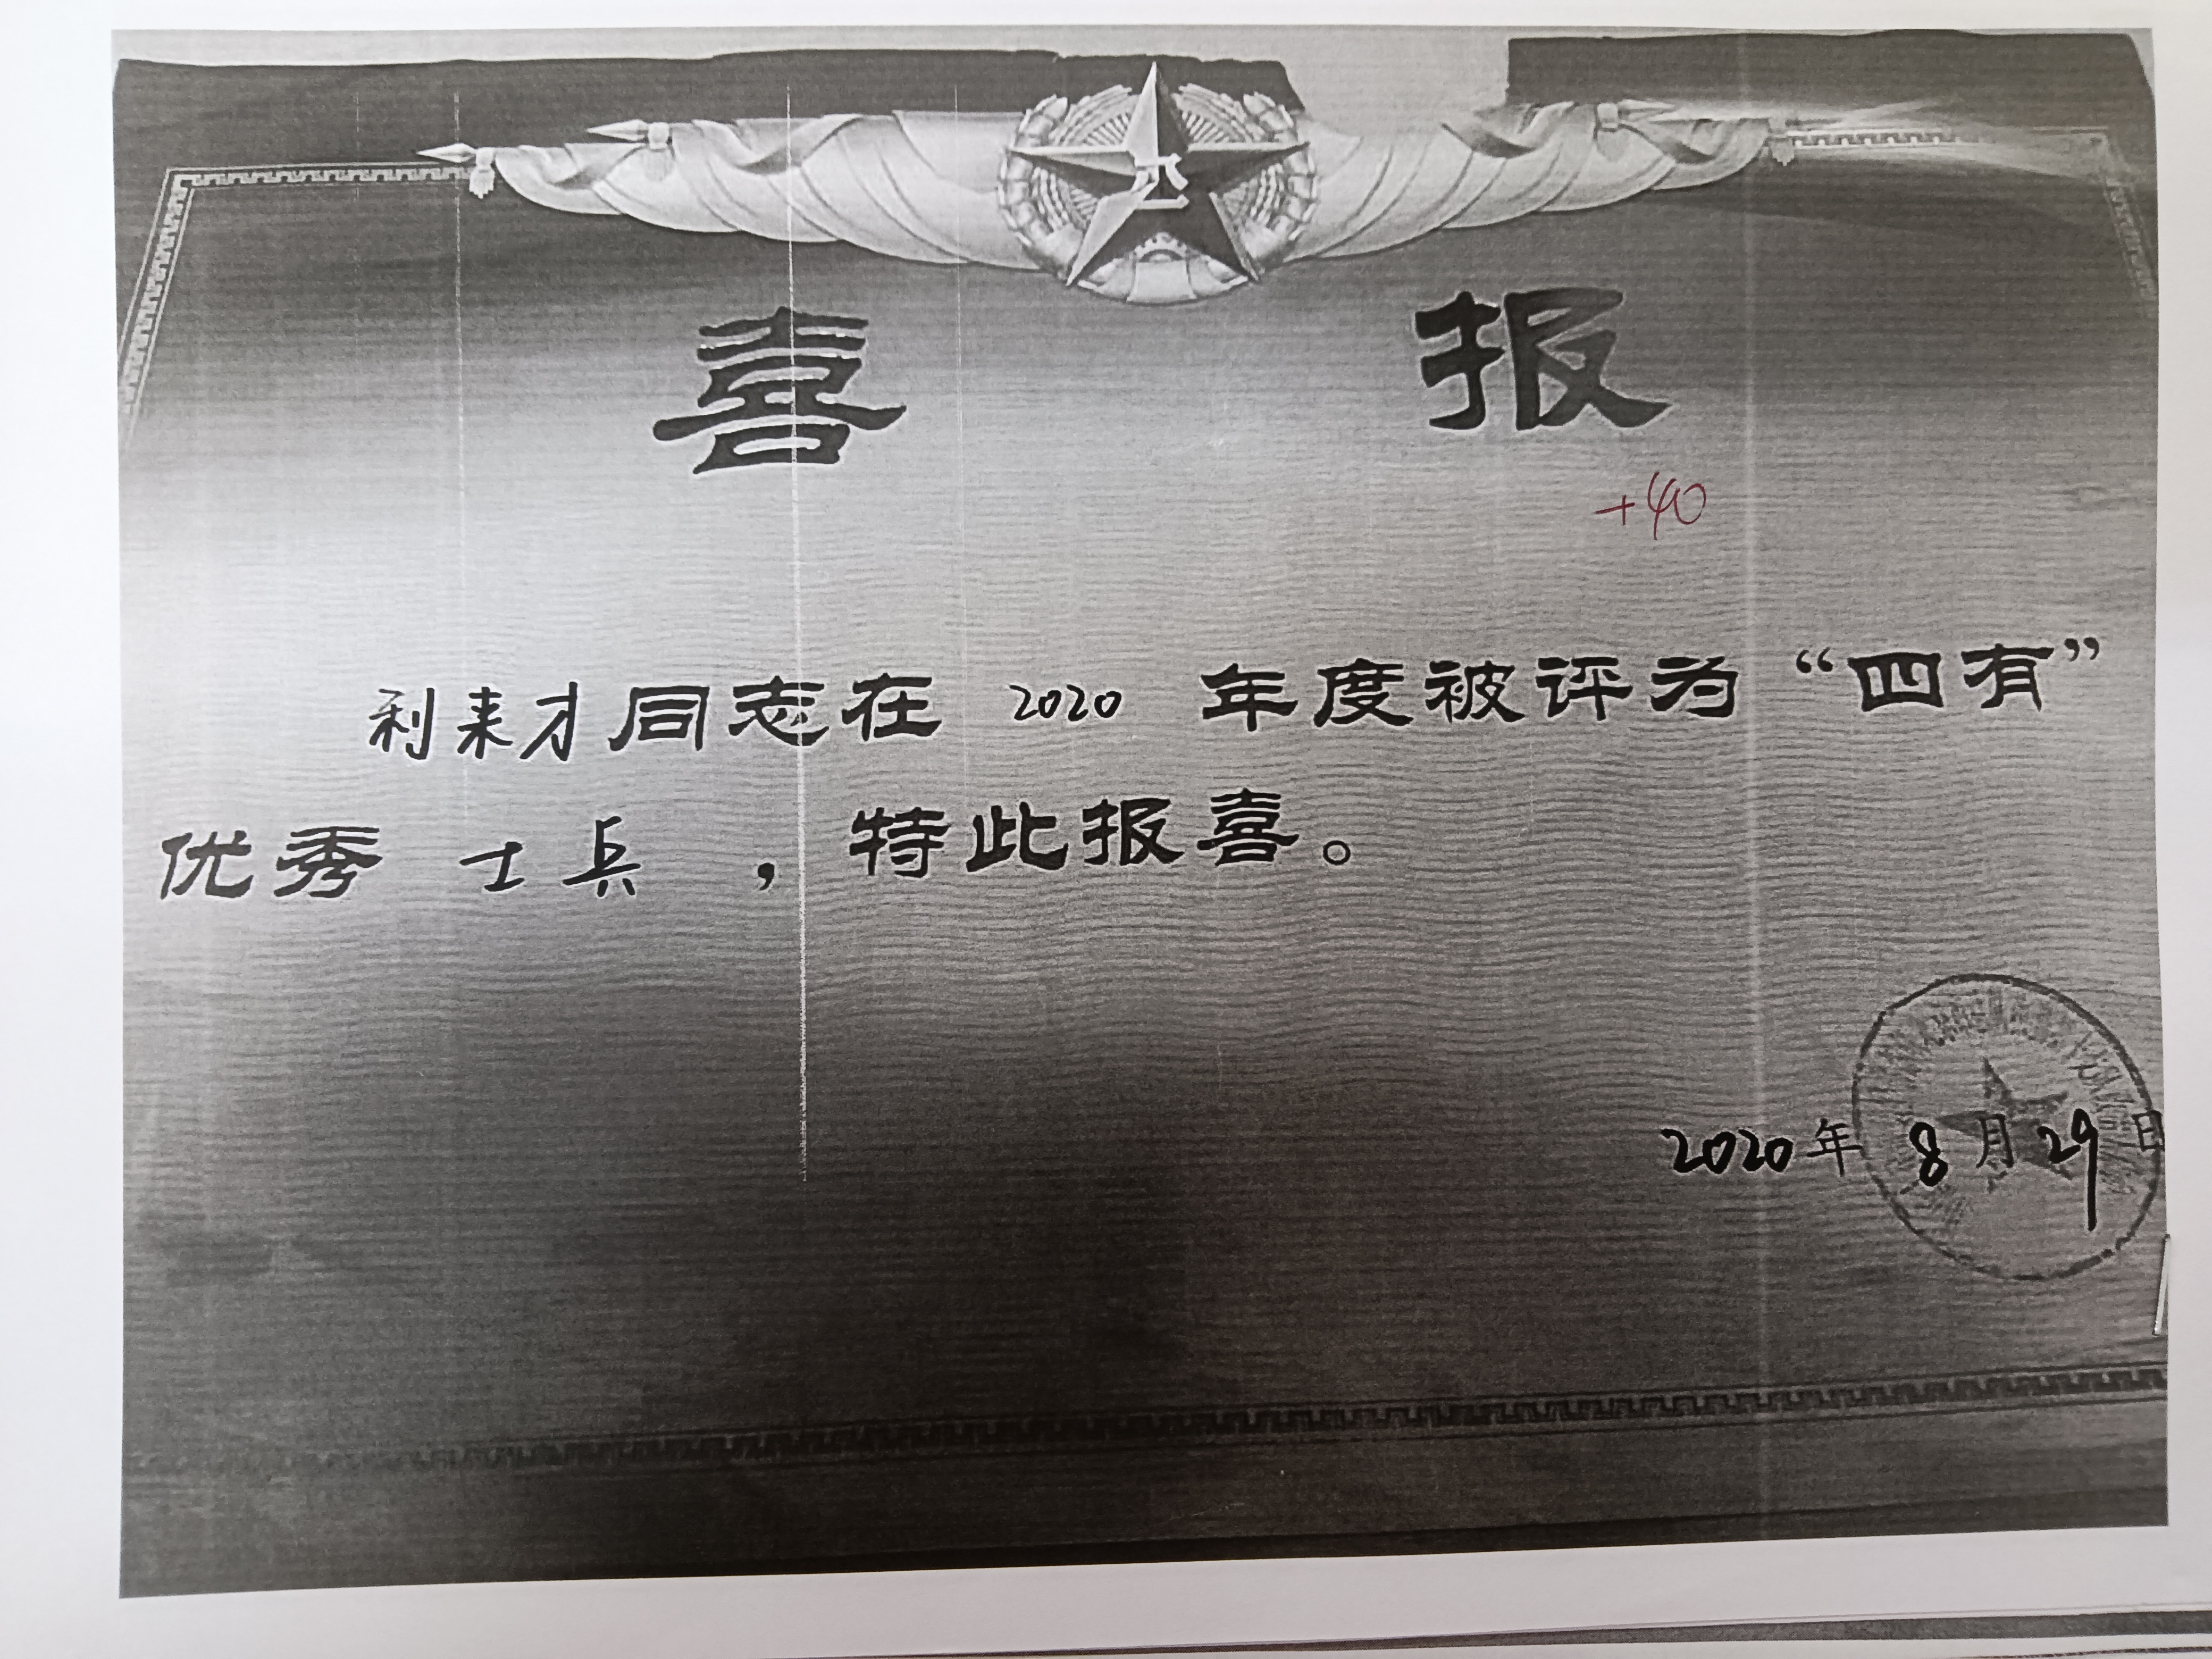 喜 报
+40
利来才同志在 2020 年度被评为“四有”
优秀 士兵 ，特此报喜。
2020年 8月29日